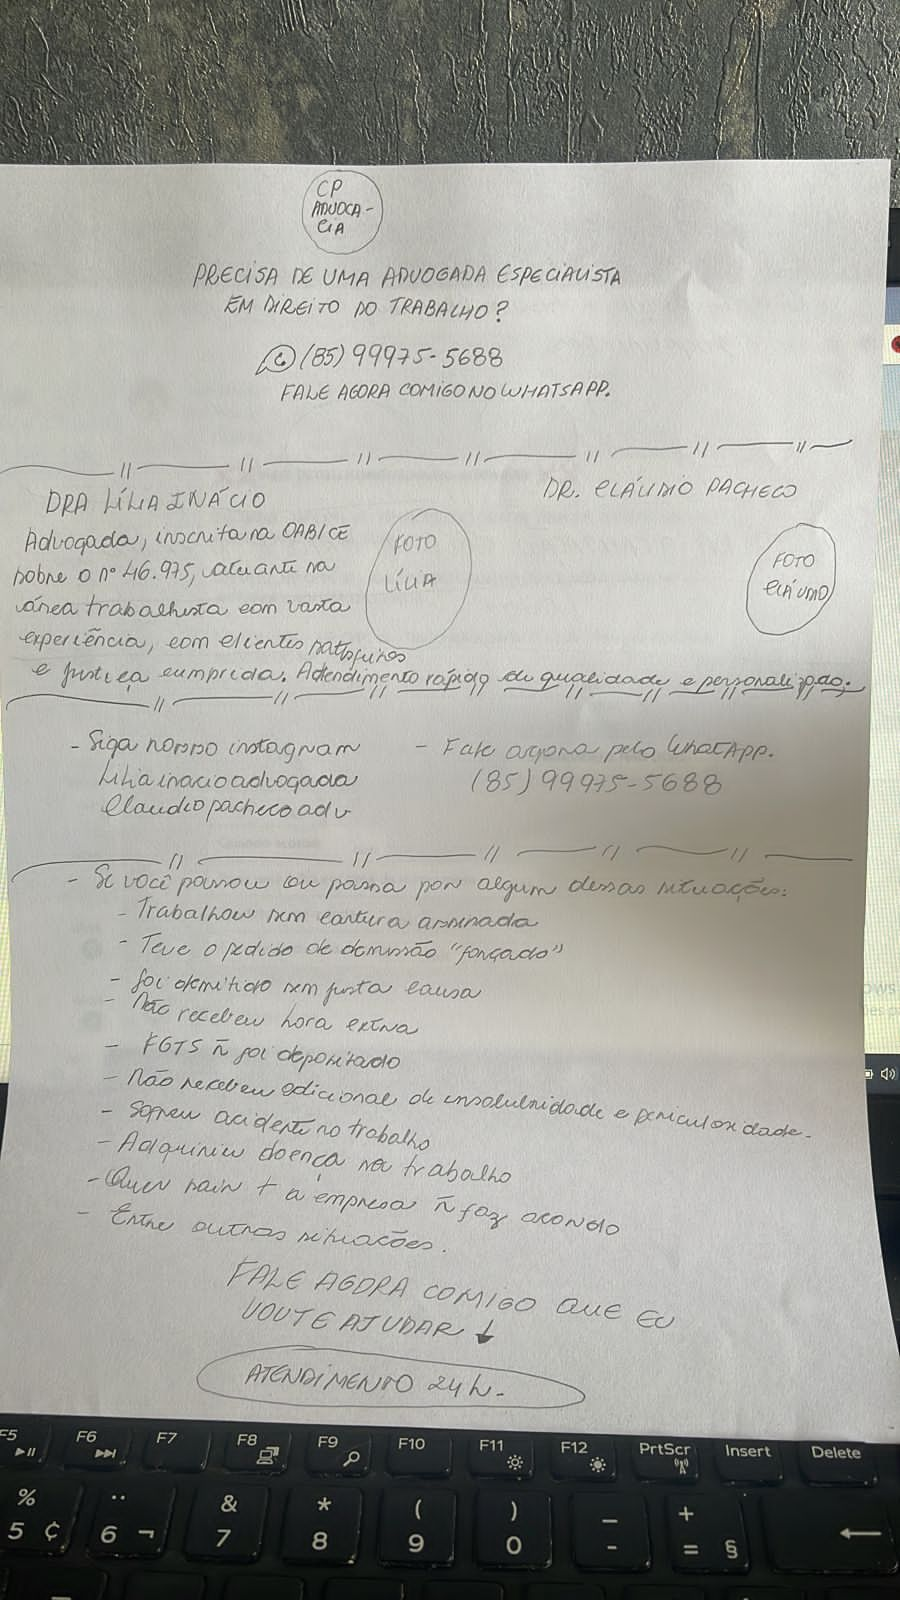 CP
ADVOCA-
CIA
PRECISA DE UMA ADVOGADA ESPECIALISTA
EM DIREITO DO TRABALHO?
(85) 99975-5688
FALE AGORA COMIGO NO WHATSAPP.
DRA LÍLIA INÁCIO
DR. CLÁUDIO PACHECO
Advogada, inscrita na OAB/CE
sobre o nº 46.975, atuante na
área trabalhista com vasta
experiência, com clientes satisfeitos
e justiça cumprida. Atendimento rápido de qualidade e personalizado.
FOTO
LÍLIA
FOTO
CLÁUDIO
- Siga nosso instagram
liliainacioadvogada
Claudiopachecoadv
- Fale agora pelo WhatApp.
(85) 99975-5688
- Se você passou ou passa por algum dessas situações:
- Trabalhou sem carteira assinada
- Teve o pedido de demissão "forçado"
- foi demitido sem justa causa
- Não recebeu hora extra
- FGTS ñ foi depositado
- Não recebeu adicional de e periculosidade.
- Sofreu acidente no trabalho
- Adquiriu doença no trabalho
- Quer sair + a empresa ñ faz acordo
- Entre outras situações.
FALE AGORA COMIGO QUE EU
VOU TE AJUDAR ↓
ATENDIMENTO 24h.
F5
F6
F7
F8
F9
F10
F11
F12
PrtScr
Insert
Delete
%
5 ¢
¨
6 ¬
&
7
*
8
(
9
)
0
_
-
+
= §
←